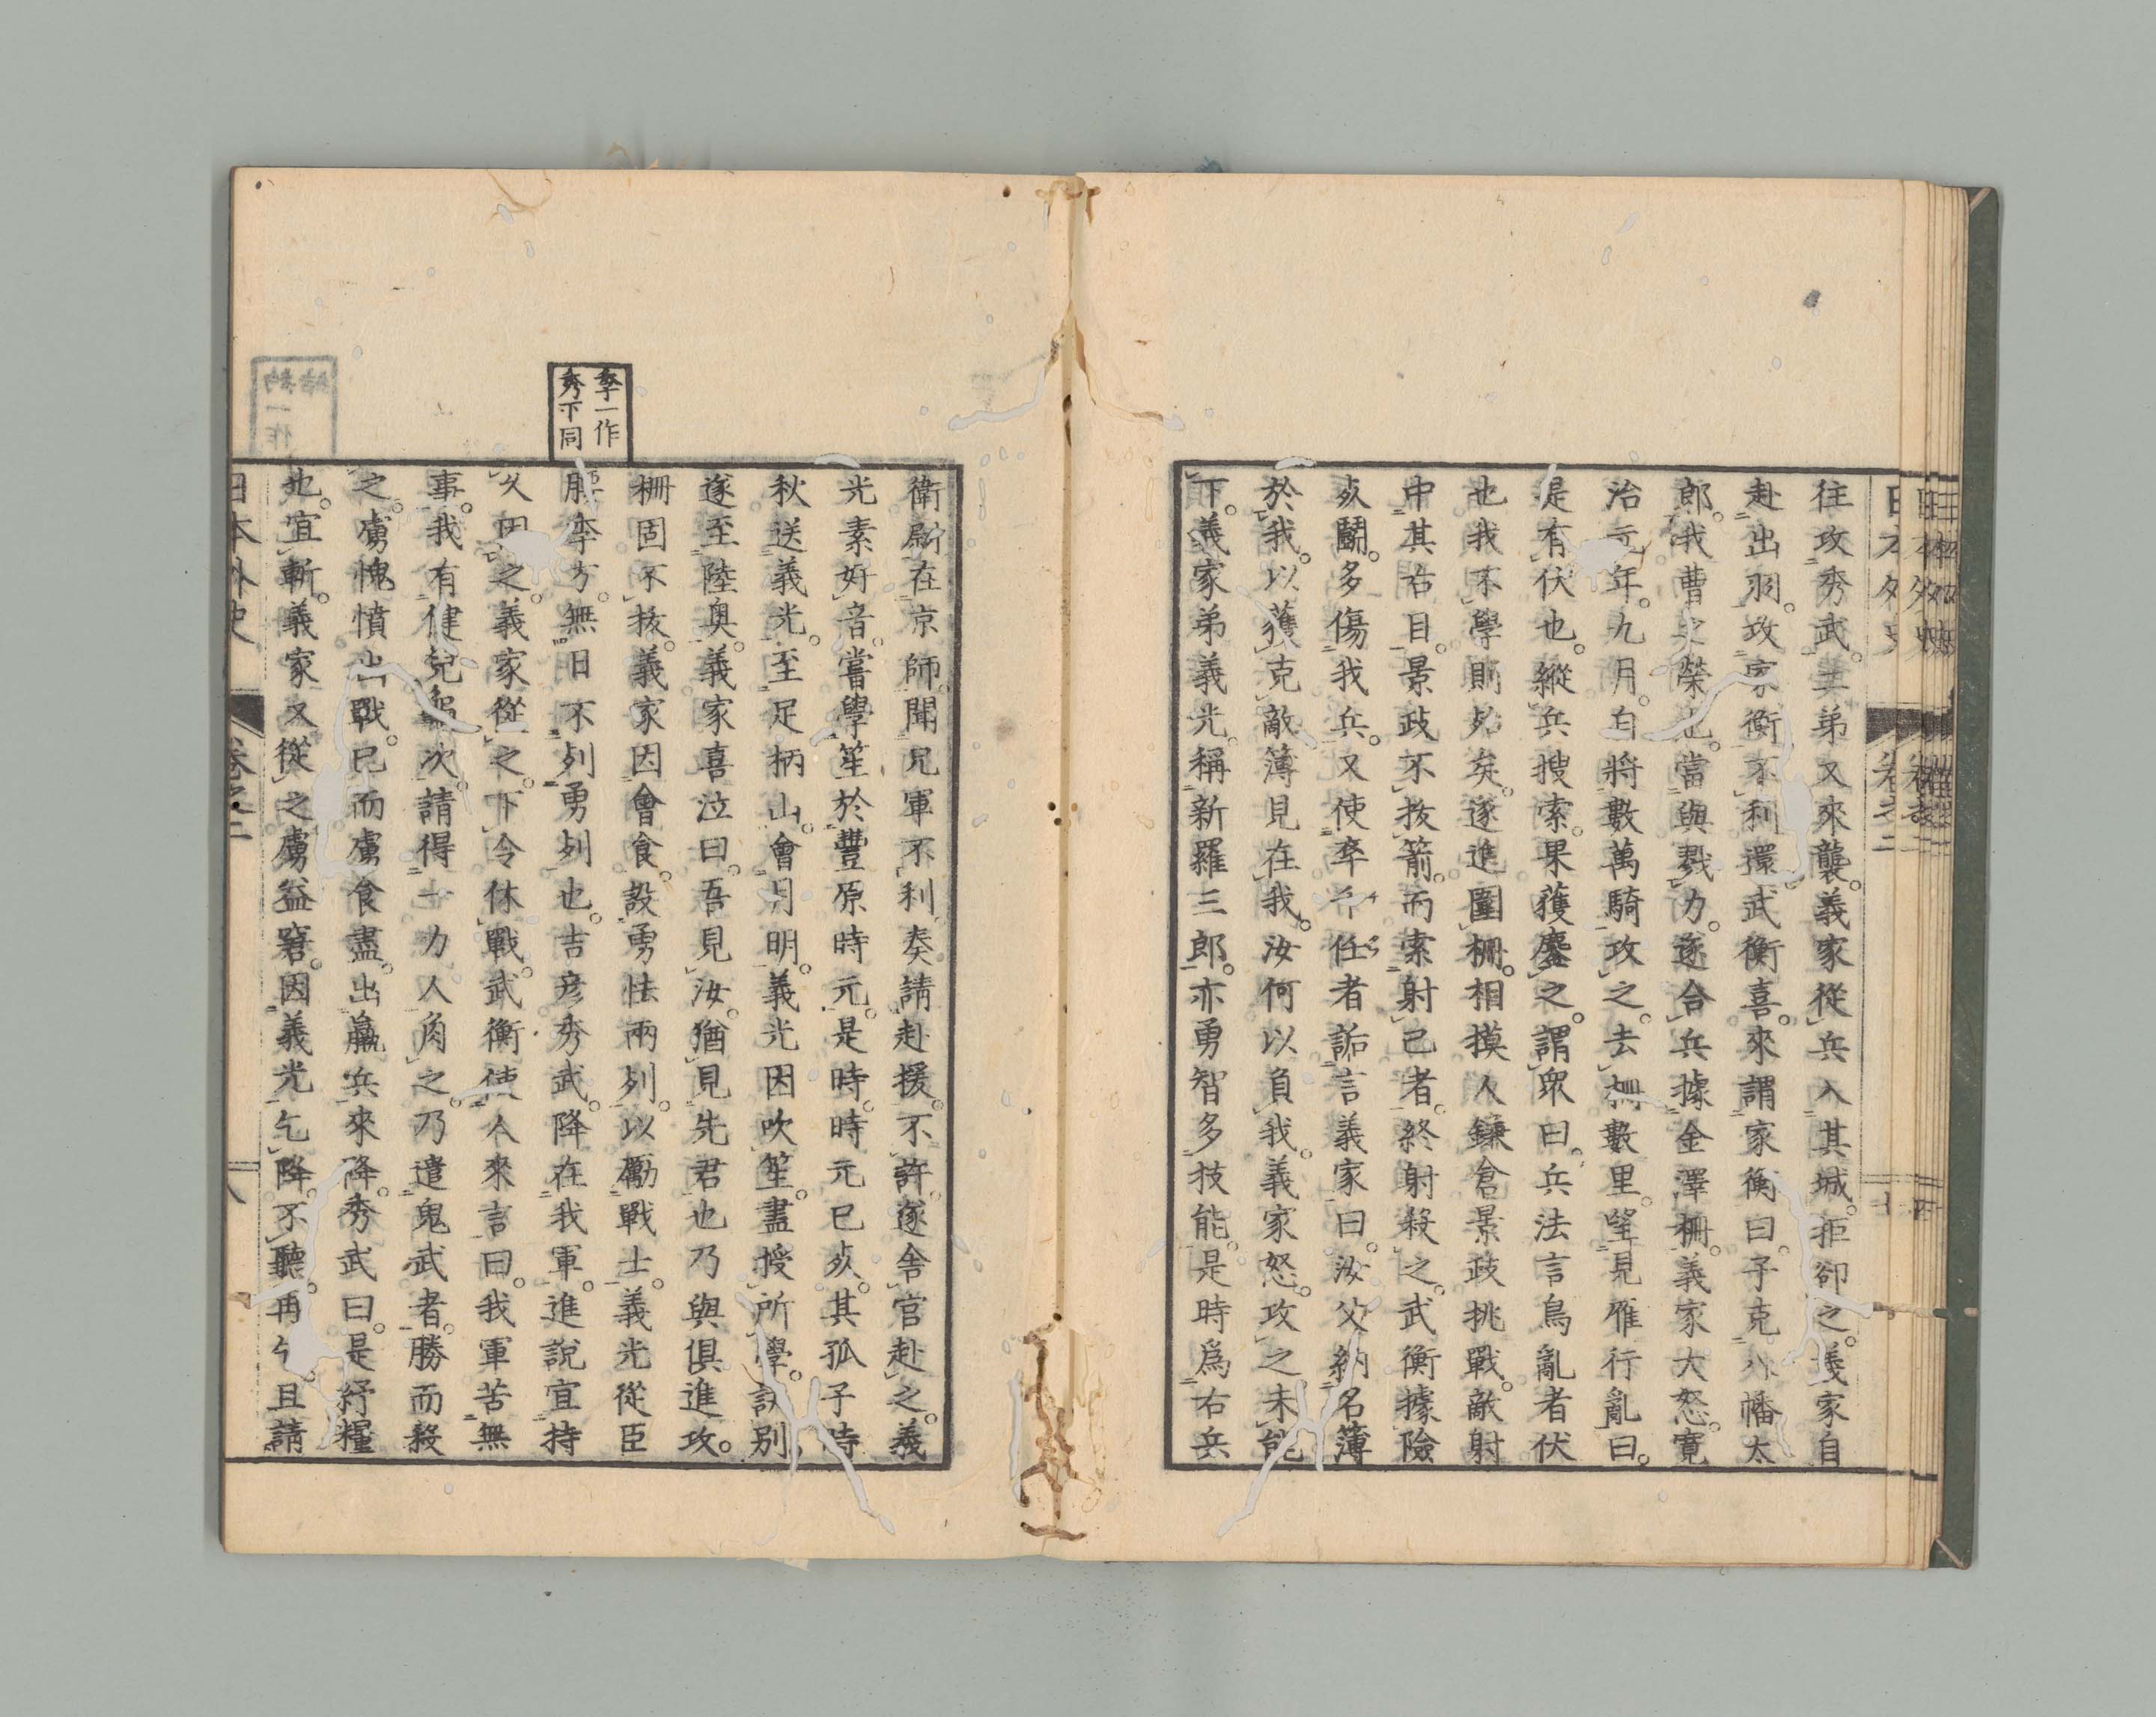 往攻秀武。其弟又來襲。義家從兵入其城。拒卻之。義家自
赴出羽。攻家衡不利還武衡喜。來謂家衡曰。子克八幡太
郎。我曹之榮也。當與戮力。遂合兵據金澤柵。義家大怒。寛
治元年。九月。自將數萬騎攻之。去柵數里。望見雁行亂曰。
是有伏也。縱兵搜索。果獲鏖之。謂衆曰。兵法言鳥亂者伏
也我不學則死矣。遂進圍柵。相摸人鎌倉景政挑戰。敵射
中其右目。景政不拔箭。而索射己者。終射殺之。武衡據險
死鬪。多傷我兵。又使卒千任者詬言義家曰。汝父納名簿
於我。以獲克敵簿見在我。汝何以負我。義家怒。攻之未能
下。義家弟義光。稱新羅三郎。亦勇智多技能。是時爲右兵
季一作
秀下同
衛尉在京師聞兄軍不利。奏請赴援。不許。遂舍官赴之。義
光素好音。嘗學笙於豐原時元。是時。時元已死。其孤子時
秋送義光。至足柄山。會月明。義光因吹笙。盡授所學。訣別。
遂至陸奧。義家喜泣曰。吾見汝。猶見先君也乃與俱進攻。
柵固不拔。義家因會食。設勇怯兩列。以勵戰士。義光從臣
季方。無日不列勇列也。吉彦秀武。降在我軍。進說宜持
久困之。義家從之。下令休戰。武衡使人來言曰。我軍苦無
事。我有健兒龜次。請得力人角之。乃遣鬼武者。勝而殺
之。虜愧憤出戰。已而虜食盡。出羸兵來降。秀武曰。是紓糧
也。宜斬。義家又從之虜益窘。因義光乞降。不聽。再乞。且請
日本外史 卷之二 八